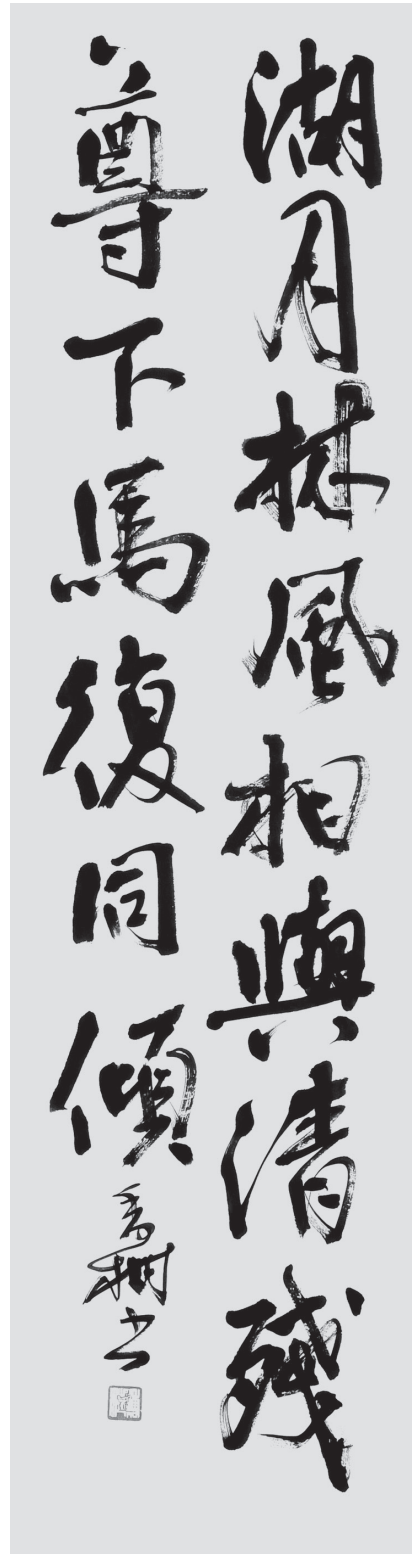 湖月林風相與清殘
尊下馬復同傾
香樹書